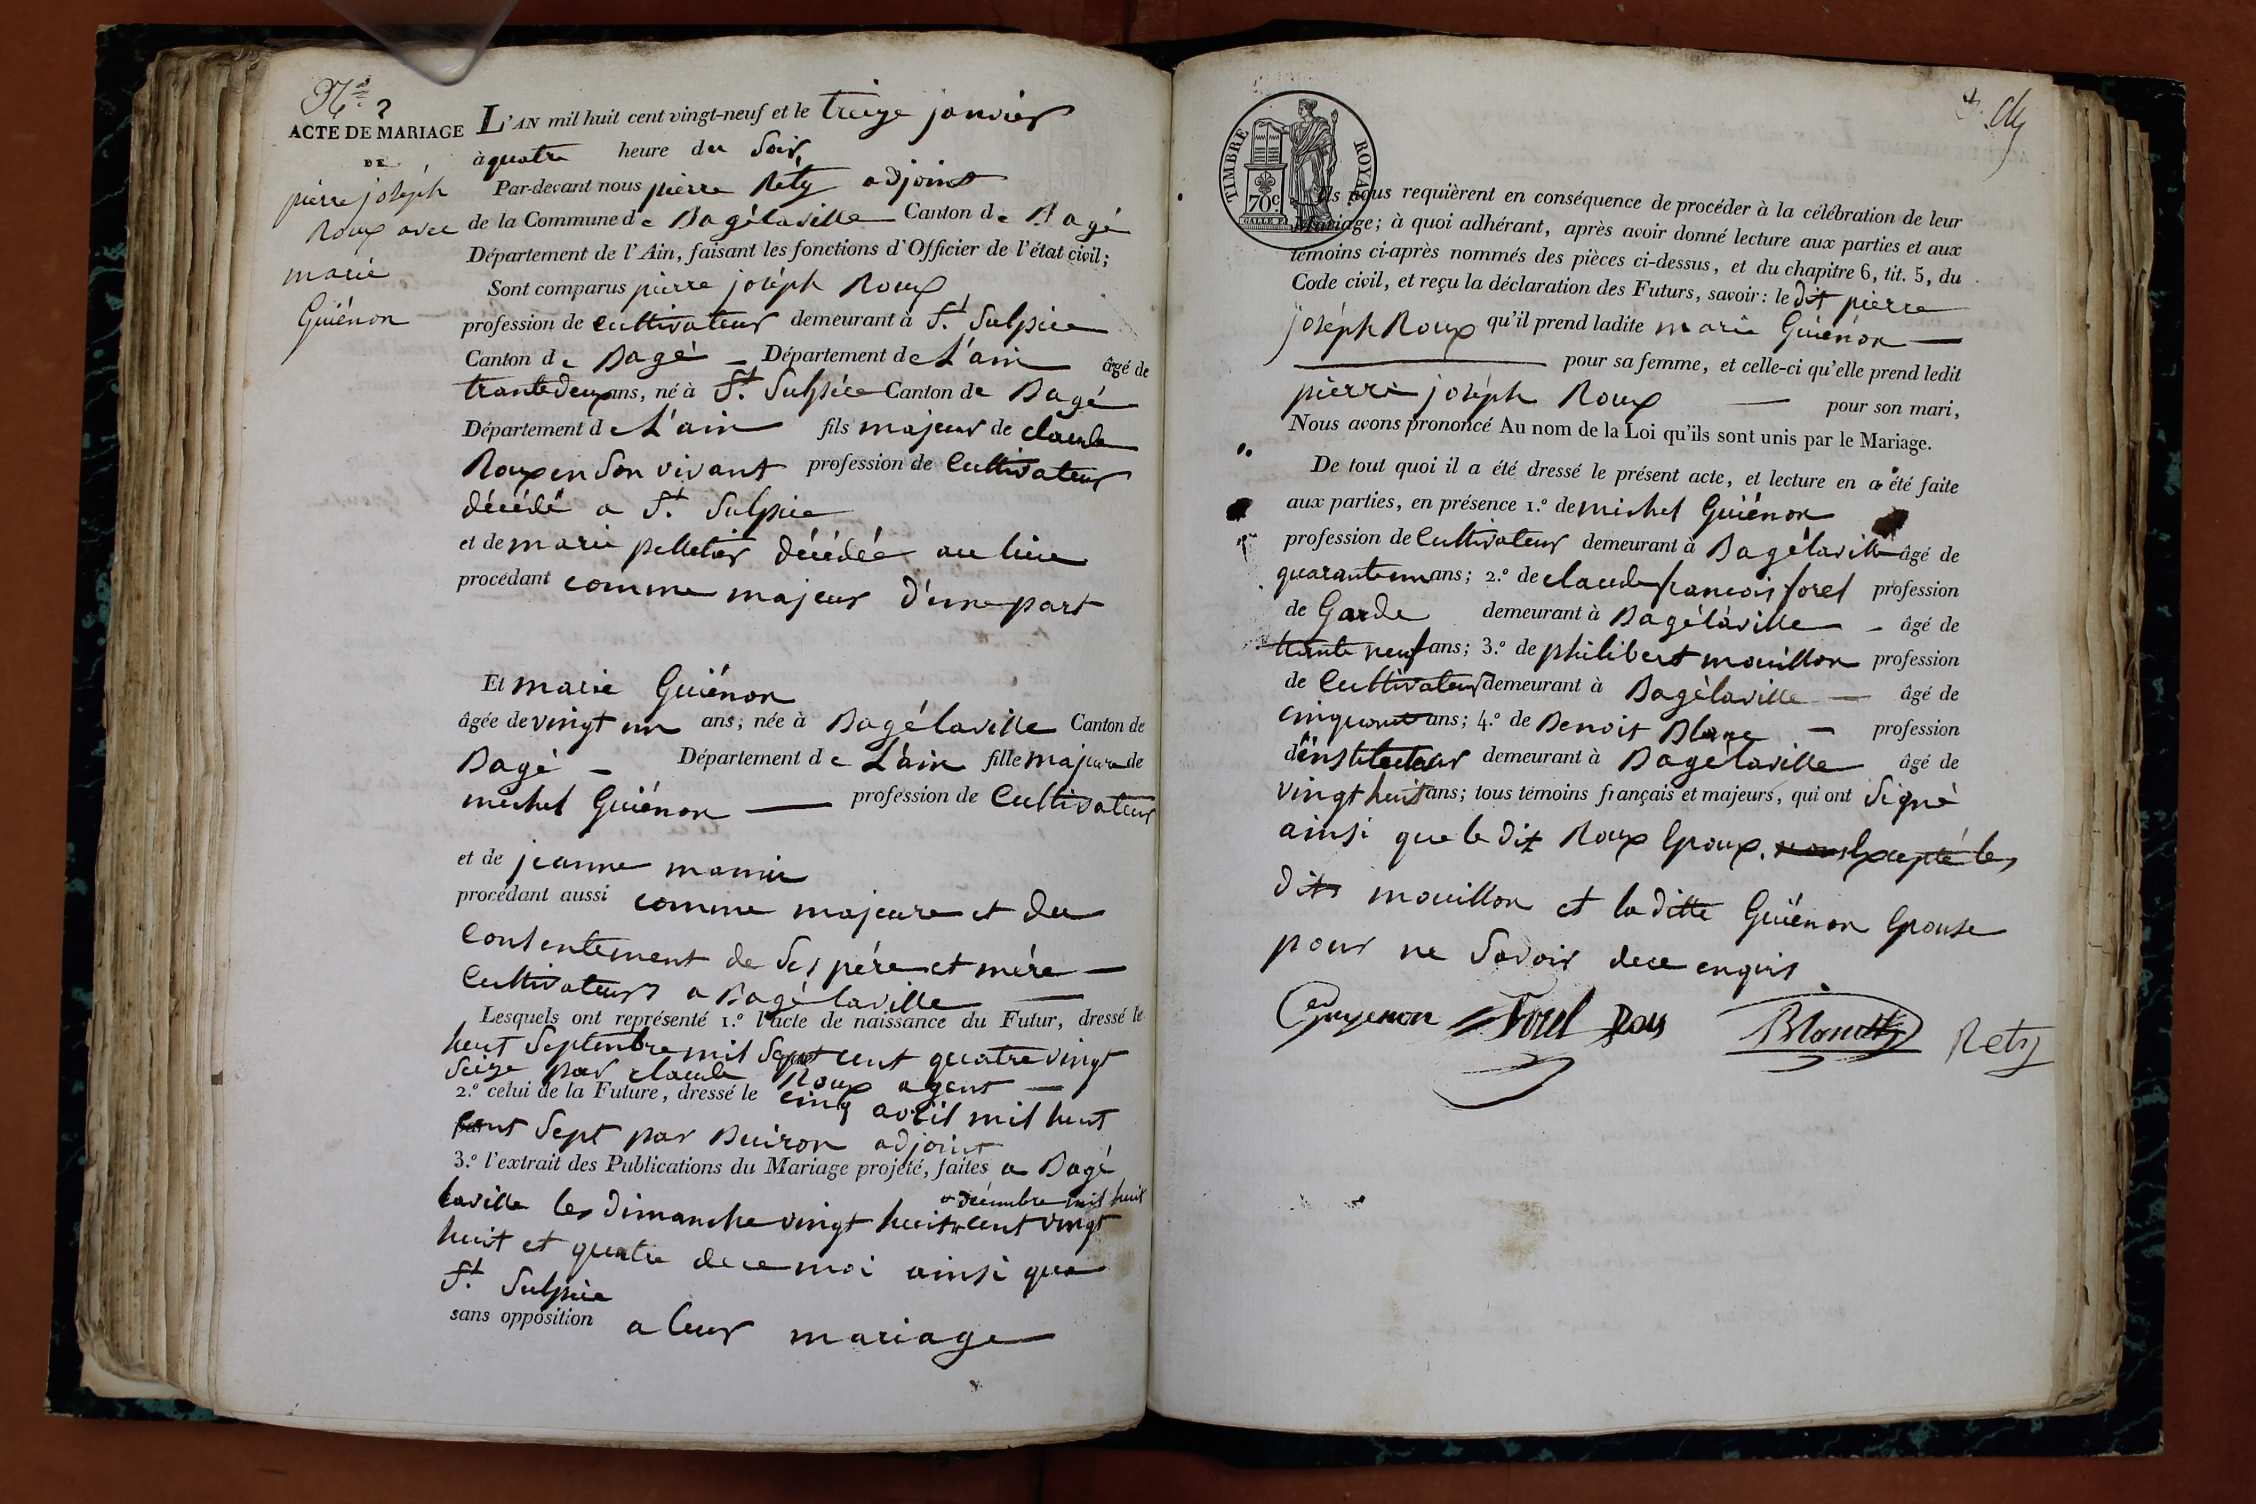 N.º 2
ACTE DE MARIAGE
DE
pierre joséph
Roux avec
marie
Guiénon
L'AN mil huit cent vingt-neuf et le treize janvier
à quatre heure du Soir
Par-devant nous pierre Réty adjoint
de la Commune de Bagélaville Canton de Bagé
Département de l'Ain, faisant les fonctions d'Officier de l'état civil;
Sont comparus pierre joséph Roux
profession de Cultivateur demeurant à St. Sulpice
Canton de Bagé Département de L'ain âgé de
trante deux ans, né à St. Sulpice Canton de Bagé
Département de L'ain fils majeur de claude
Roux en Son vivant profession de Cultivateur
décédé a St. Sulpice
et de marie pelletier décédée au lieu
procédant comme majeur d'une part
Et marie Guiénon
âgée de vingt un ans; née à Bagélaville Canton de
Bagé Département de L'ain fille majeure de
michel Guiénon profession de Cultivateur
et de jeanne
procédant aussi comme majeure et du
Consentement de Ses pére et mére
Cultivateurs a Bagélaville
Lesquels ont représenté 1.º l'acte de naissance du Futur, dressé le
huit Septembre mil Sept cent quatre vingt
Seize par claude Roux agent
2.º celui de la Future, dressé le cinq avril mil huit
cent Sept par Buiron adjoint
3.º l'extrait des Publications du Mariage projeté, faites a Bagé
laville les dimanche vingt huit décembre mil huit cent vingt
huit et quatre de ce moi ainsi qua
St. Sulpice
sans opposition a leur mariage
TIMBRE ROYAL
70 c.
Ils nous requièrent en conséquence de procéder à la célébration de leur
Mariage; à quoi adhérant, après avoir donné lecture aux parties et aux
témoins ci-après nommés des pièces ci-dessus, et du chapitre 6, tit. 5, du
Code civil, et reçu la déclaration des Futurs, savoir: le dit pierre
joséph Roux qu'il prend ladite marie Guiénon
pour sa femme, et celle-ci qu'elle prend ledit
pierre joséph Roux pour son mari,
Nous avons prononcé Au nom de la Loi qu'ils sont unis par le Mariage.
De tout quoi il a été dressé le présent acte, et lecture en a été faite
aux parties, en présence 1.º de michel Guiénon
profession de Cultivateur demeurant à Bagélaville âgé de
quarante un ans; 2.º de claude francois forel profession
de Garde demeurant à Bagélaville âgé de
trante neuf ans; 3.º de philibert mouillon profession
de Cultivateur demeurant à Bagélaville âgé de
cinquante ans; 4.º de Benoit Blanc profession
d'instituteur demeurant à Bagélaville âgé de
vingt huit ans; tous témoins français et majeurs, qui ont Signé
ainsi que le dit Roux Epoux, non Excepté les
dits mouillon et la ditte Guiénon Epouse
pour ne Savoir de ce enquis
Guyenon Forel Rou Blanc Rety